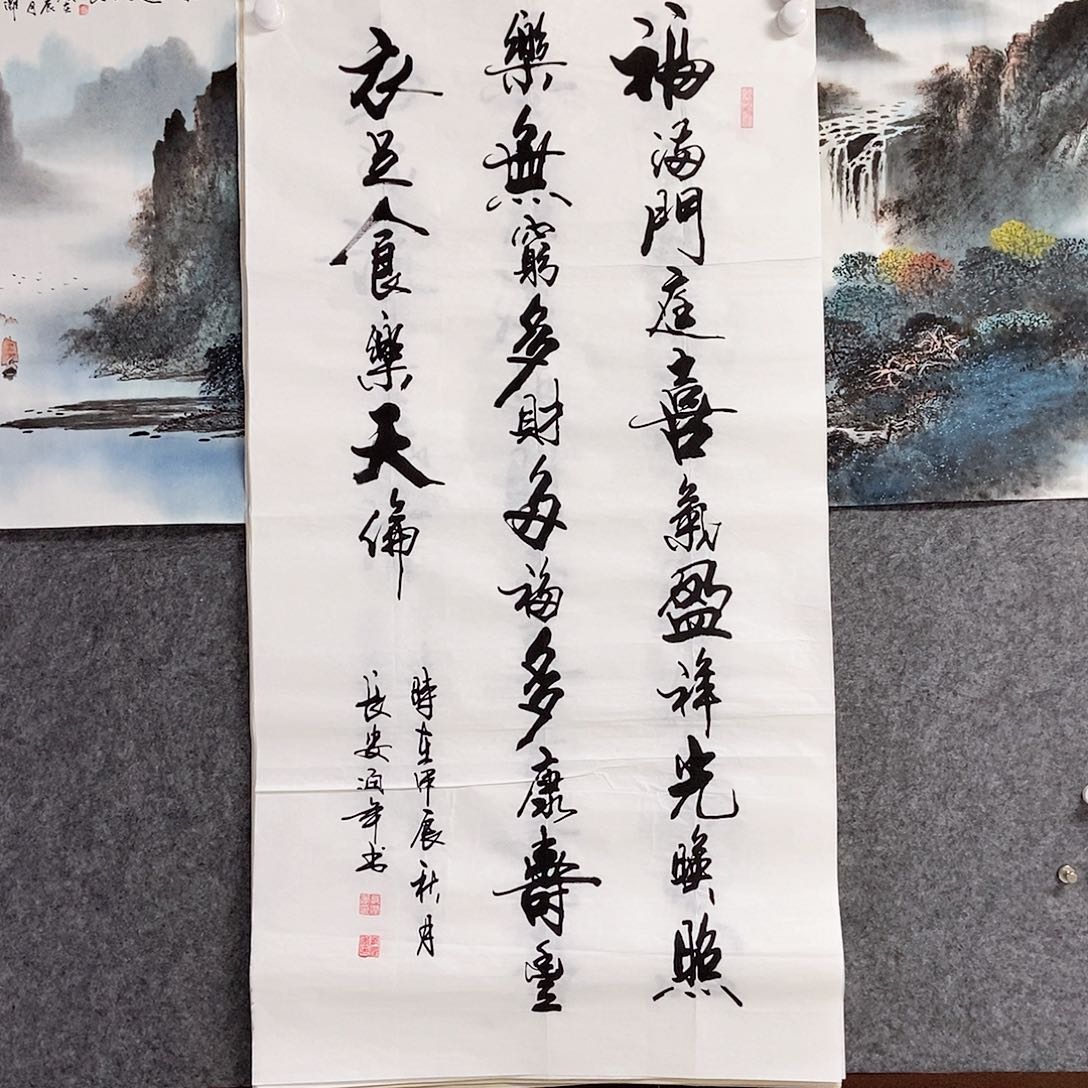 福滿門庭喜氣盈祥光暎照
樂無窮多財多福多康壽豐
衣足食樂天倫
時在甲辰秋月
長安涵年书